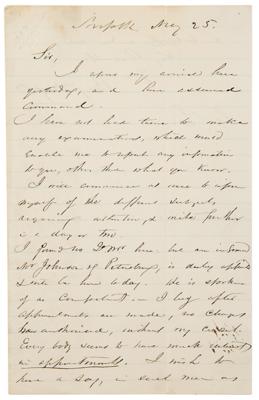 Norfolk May 25.
Sir,
I upon my arrival here
yesterday, and have assumed
Command.
I have not had time to make
any examinations, which would
enable me to report any information
to you, other than what you know.
I will commence at once to inform
myself of the different subjects
requiring attention, & write further
in a day or two.
I find no Dr here but am informed
Mr Johnson of Petersburg, is daily expected
to be here to day. He is spoken
of as Competent. I beg after
appointments are made, no changes
be authorised, without my consent.
Every body seems to have much interest
in appointments. I wish to
have a say, in said men as